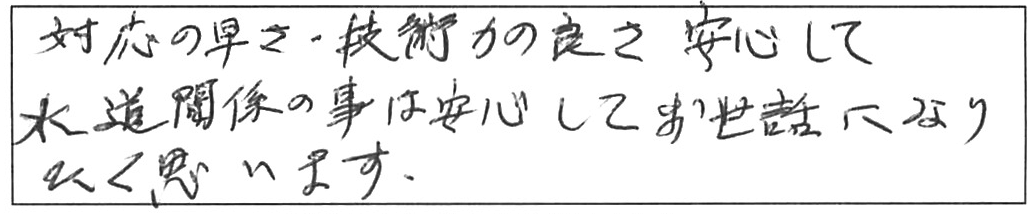 対応の早さ・技術力の良さ 安心して
水道関係の事は安心してお世話になり
たく思います.